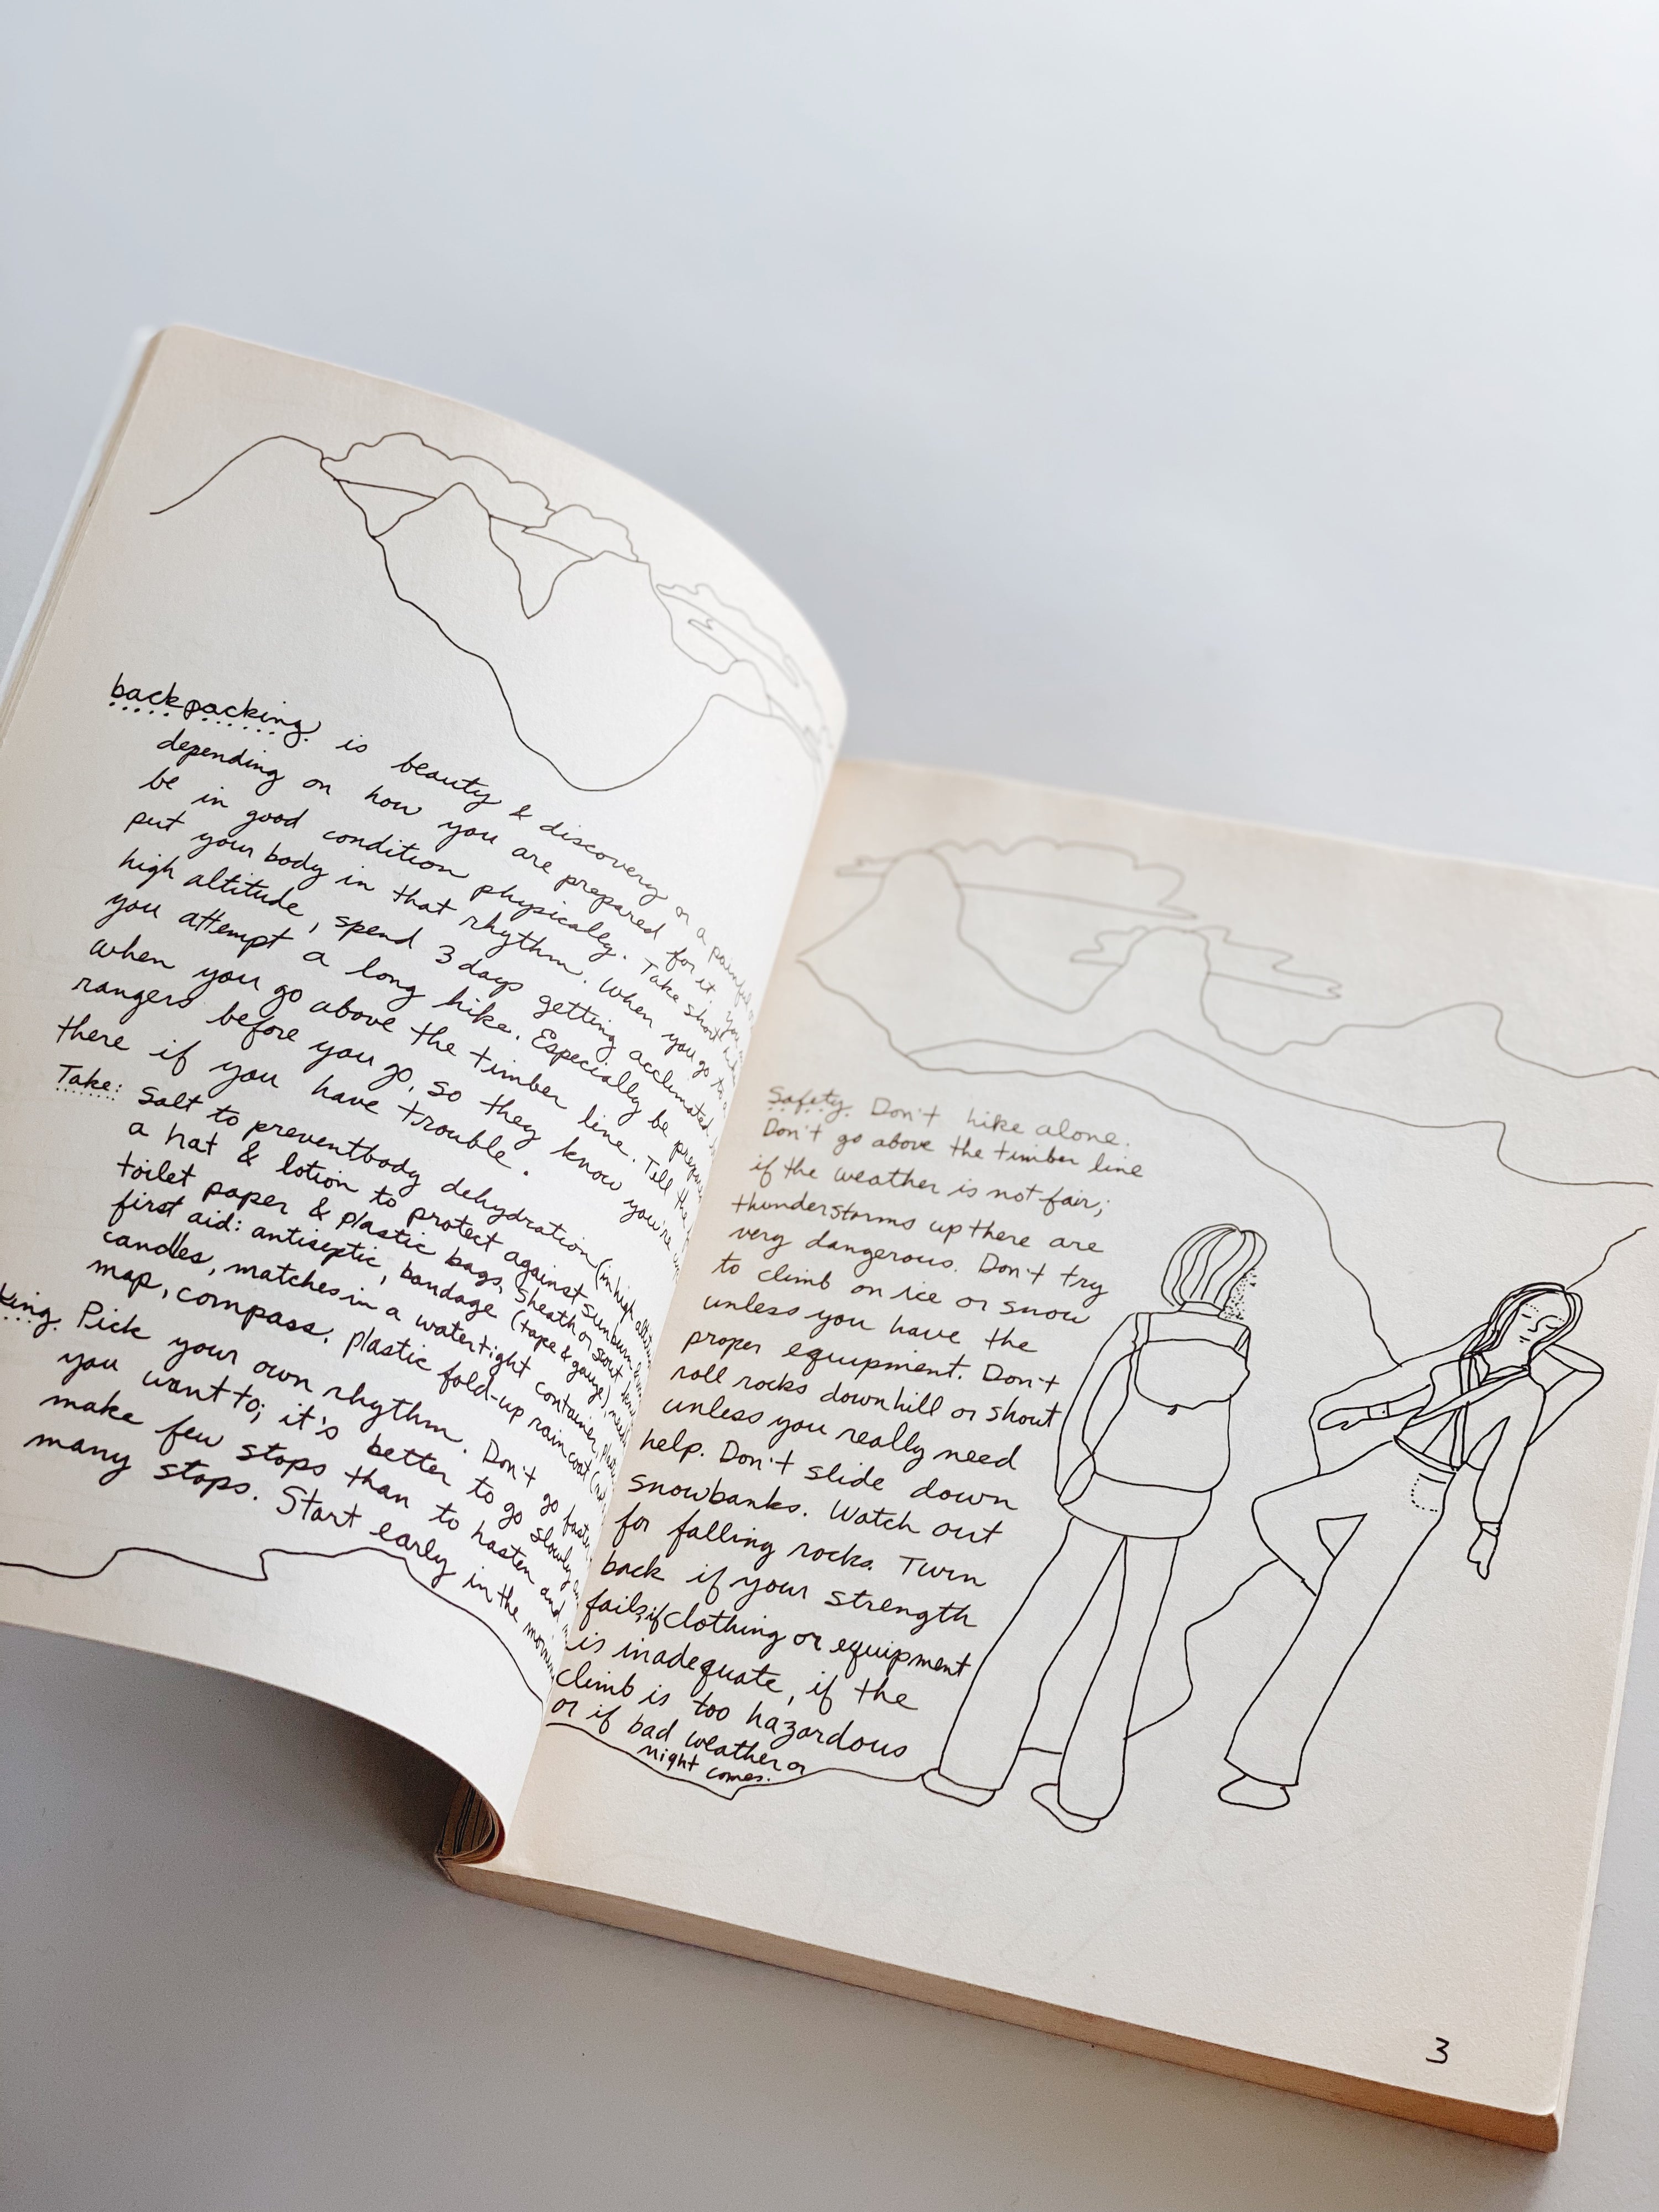 backpacking is beauty & discovery or a painful
depending on how you are prepared for it. You
be in good condition physically. Take short
put your body in that rhythm. When you go to a
high altitude, spend 3 days getting acclimated
you attempt a long hike. Especially be prepared
when you go above the timber line. Tell the
rangers before you go, so they know you're
there if you have trouble.
Take: salt to prevent body dehydration (in high
a hat & lotion to protect against sunburn
toilet paper & plastic bags. Sheath or scout
first aid: antiseptic, bandage (tape & gauze),
candles, matches in a watertight container,
map, compass, plastic fold-up raincoat
king. Pick your own rhythm. Don't go faster
you want to; it's better to go slowly
make few stops than to hasten and
many stops. Start early in the morning
Safety. Don't hike alone.
Don't go above the timber line
if the weather is not fair;
thunderstorms up there are
very dangerous. Don't try
to climb on ice or snow
unless you have the
proper equipment. Don't
roll rocks downhill or shout
unless you really need
help. Don't slide down
snowbanks. Watch out
for falling rocks. Turn
back if your strength
fails, if clothing or equipment
is inadequate, if the
climb is too hazardous
or if bad weather or
night comes.
3